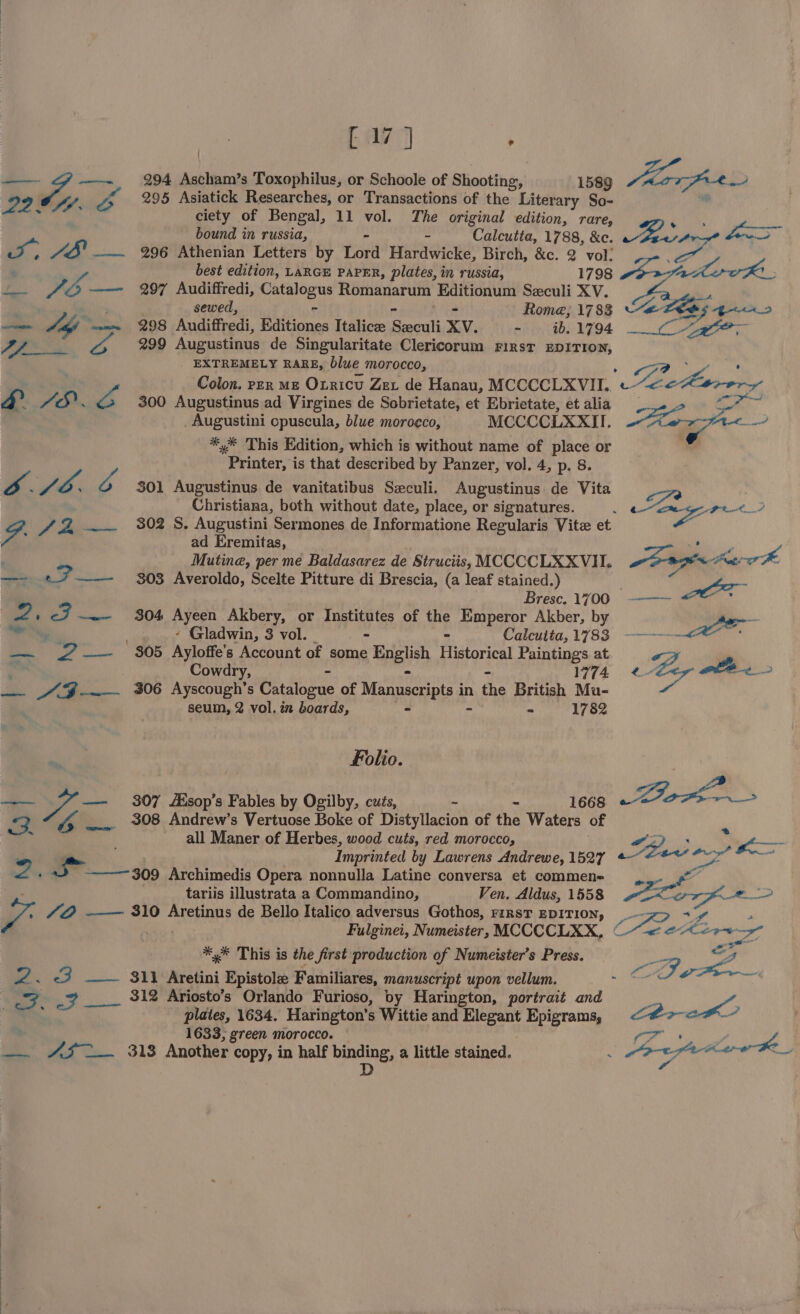 [ 17 ]
— 9 — 294 Ascham's Toxophilus, or Schoole of Shooting, 1589 Thorpe
295 Asiatick Researches, or Transactions of the Literary So-
ciety of Bengal, 11 vol. The original edition, rare,
bound in russia, - - Calcutta, 1788, &c.
5. 18 — 296 Athenian Letters by Lord Hardwicke, Birch, &c. 2 vol.
best edition, LARGE PAPER, plates, in russia, 1798
— 16 — 297 Audiffredi, Catalogus Romanarum Editionum Sæculi XV.
sewed, - - - Romæ, 1783
298 Audiffredi, Editiones Italicæ Sæculi XV. - ib. 1794
299 Augustinus de Singularitate Clericorum FIRST EDITION,
EXTREMELY RARE, blue morocco,
Colon. PER ME OLRICU ZEL de Hanau, MCCCCLXVII.
8. 18. 6 300 Augustinus ad Virgines de Sobrietate, et Ebrietate, et alia
Augustini opuscula, blue morocco, MCCCCLXXII. Thorpe
*** This Edition, which is without name of place or
Printer, is that described by Panzer, vol. 4, p. 8.
6. 16. 6 301 Augustinus de vanitatibus Sæculi. Augustinus de Vita
Christiana, both without date, place, or signatures.
9. 12 — 302 S. Augustini Sermones de Informatione Regularis Vitæ et
ad Eremitas,
Mutinæ, per me Baldasarez de Struciis, MCCCCLXXVII.
303 Averoldo, Scelte Pitture di Brescia, (a leaf stained.)
Bresc. 1700
2. 3 — 304 Ayeen Akbery, or Institutes of the Emperor Akber, by
Gladwin, 3 vol. - - Calcutta, 1783
— 2 — 305 Ayloffe's Account of some English Historical Paintings at
Cowdry, - - - 1774
— 13 — 306 Ayscough's Catalogue of Manuscripts in the British Mu-
seum, 2 vol. in boards, - - - 1782
Folio.
— 7 — 307 Æsop's Fables by Ogilby, cuts, - - 1668
3. 6 — 308 Andrew's Vertuose Boke of Distyllacion of the Waters of
all Maner of Herbes, wood cuts, red morocco,
Imprinted by Lawrens Andrewe, 1527
2. 5 — 309 Archimedis Opera nonnulla Latine conversa et commen-
tariis illustrata a Commandino, Ven. Aldus, 1558 Thorpe
7. 10 — 310 Aretinus de Bello Italico adversus Gothos, FIRST EDITION,
Fulginei, Numeister, MCCCCLXX,
*** This is the first production of Numeister's Press.
2. 3 — 311 Aretini Epistolæ Familiares, manuscript upon vellum.
3. 3 — 312 Ariosto's Orlando Furioso, by Harington, portrait and
plates, 1634. Harington's Wittie and Elegant Epigrams,
1633, green morocco.
— 15 — 313 Another copy, in half binding, a little stained.
D